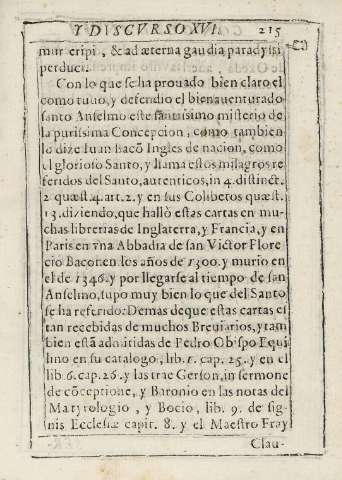 Y DISCVRSO XVI. 215
mur eripi, & ad æterna gaudia paradysi
perduci.
Con lo que se ha prouado bien claro el
como tuuo, y defendio el bienauenturado
santo Anselmo este santissimo misterio de
la purissima Concepcion, como tambien
lo dize Iuan bacõ Ingles de nacion, como
el glorioso Santo, y llama estos milagros re
feridos del Santo, autenticos, in 4. distinct.
2 quæst. 4. art. 2. y en sus Colibetos quæst.
13. diziendo, que hallò estas cartas en mu-
chas librerias de Inglaterra, y Francia, y en
Paris en vna Abbadia de san Victor Flore
cio Bacon en los años de 1300. y murio en
el de 1346. y por llegarse al tiempo de san
Anselmo, supo muy bien lo que del Santo
se ha referido: Demas de que estas cartas es
tan recebidas de muchos Breuiarios, y tam
bien està admitidas de Pedro Obispo Equi
lino en su catalogo, lib. 1. cap. 25. y en el
lib. 6. cap. 26. y las trae Gerson, in sermone
de cõceptione, y Baronio en las notas del
Martyrologio, y Bocio, lib. 9. de sig-
nis Ecclesiæ capit. 8. y el Maestro Fray
Clau-